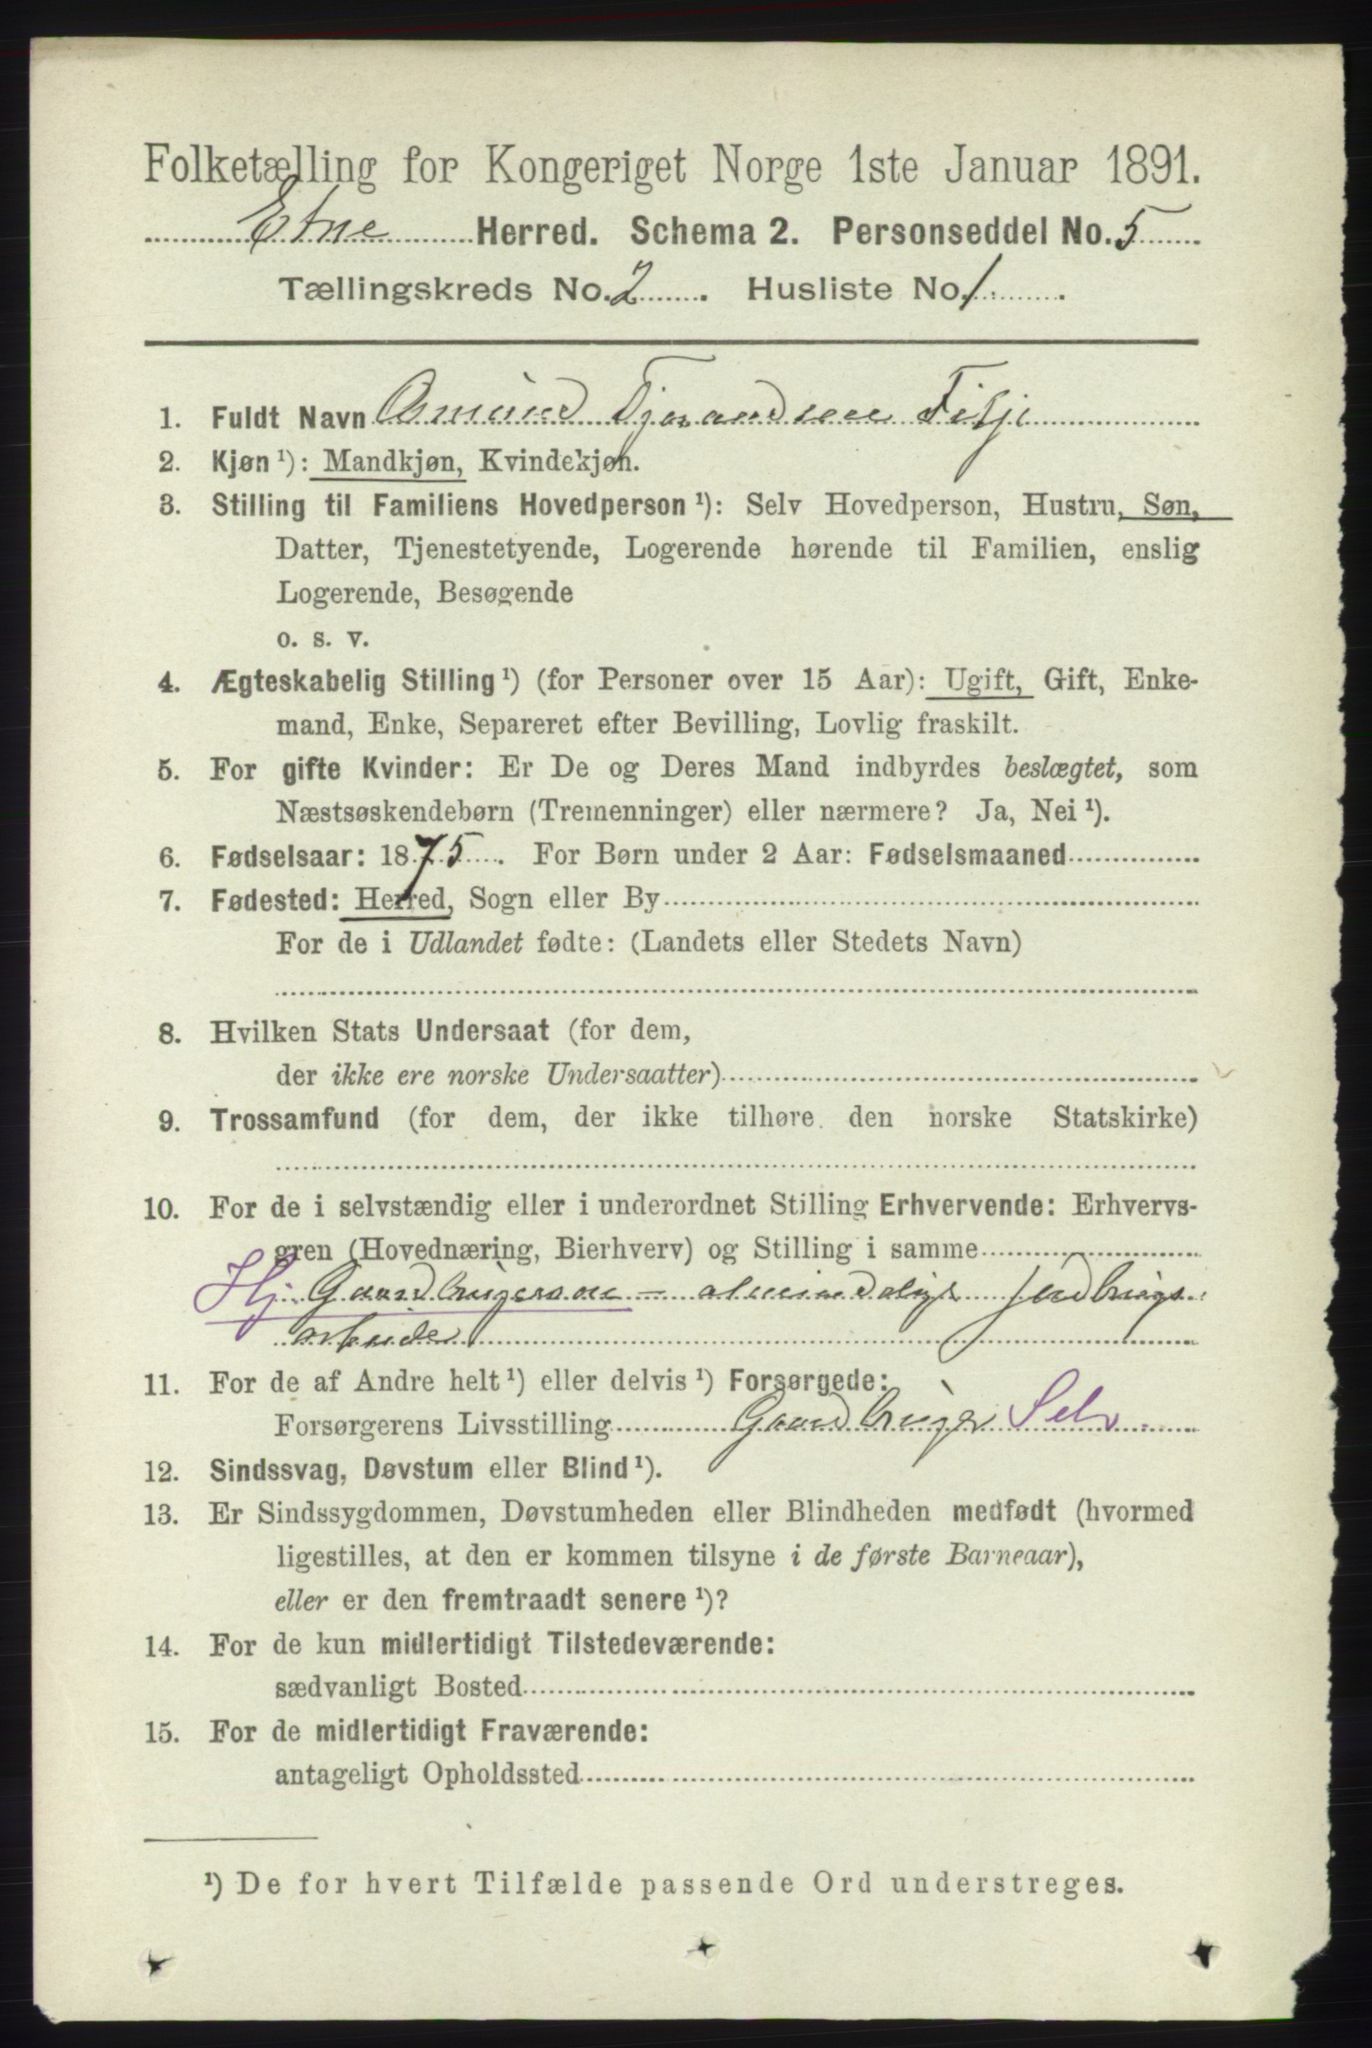 Folketælling for Kongeriget Norge 1ste Januar 1891.
Etne Herred. Schema 2. Personseddel No. 5
Tællingskreds No. 2. Husliste No. 1.
1. Fuldt Navn Osmund Tjerandsen Fitje
2. Kjøn ¹): Mandkjøn, Kvindekjøn.
3. Stilling til Familiens Hovedperson ¹): Selv Hovedperson, Hustru, Søn,
Datter, Tjenestetyende, Logerende hørende til Familien, enslig
Logerende, Besøgende
o. s. v.
4. Ægteskabelig Stilling ¹) (for Personer over 15 Aar): Ugift, Gift, Enke-
mand, Enke, Separeret efter Bevilling, Lovlig fraskilt.
5. For gifte Kvinder: Er De og Deres Mand indbyrdes beslægtet, som
Næstsøskendebørn (Tremenninger) eller nærmere? Ja, Nei ¹).
6. Fødselsaar: 1875. For Børn under 2 Aar: Fødselsmaaned
7. Fødested: Herred, Sogn eller By
For de i Udlandet fødte: (Landets eller Stedets Navn)
8. Hvilken Stats Undersaat (for dem,
der ikke ere norske Undersaatter)
9. Trossamfund (for dem, der ikke tilhøre den norske Statskirke)
10. For de i selvstændig eller i underordnet Stilling Erhvervende: Erhvervs-
gren (Hovednæring, Bierhverv) og Stilling i samme
Hj. Gaardbrugersøn – almindeligt Jordbrugs
arbeide
11. For de af Andre helt ¹) eller delvis ¹) Forsørgede:
Forsørgerens Livsstilling Gaardbruger Selv
12. Sindssvag, Døvstum eller Blind ¹).
13. Er Sindssygdommen, Døvstumheden eller Blindheden medfødt (hvormed
ligestilles, at den er kommen tilsyne i de første Barneaar),
eller er den fremtraadt senere ¹)?
14. For de kun midlertidigt Tilstedeværende:
sædvanligt Bosted
15. For de midlertidigt Fraværende:
antageligt Opholdssted
¹) De for hvert Tilfælde passende Ord understreges.